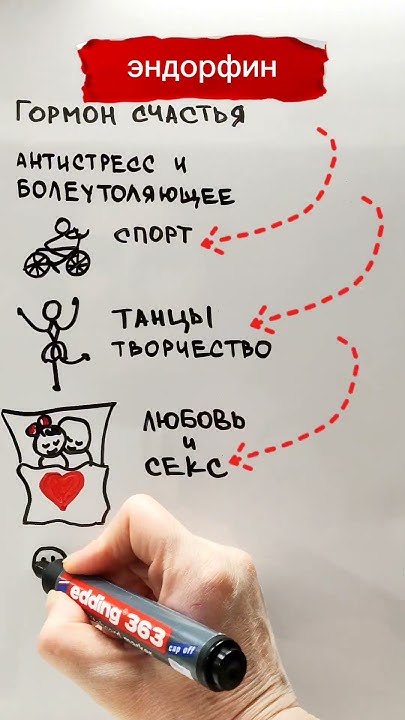 эндорфин
ГОРМОН СЧАСТЬЯ
АНТИСТРЕСС И
БОЛЕУТОЛЯЮЩЕЕ
СПОРТ
ТАНЦЫ
ТВОРЧЕСТВО
ЛЮБОВЬ
И
СЕКС
edding 363
cap off